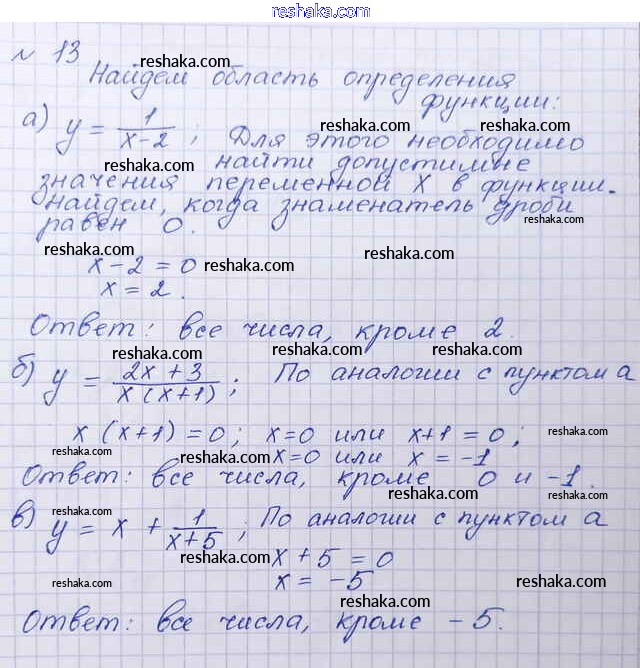 www.reshaka.com
№ 13 reshaka.com
Найдем область определения
reshaka.com функции:
а) y = 1/(x-2) ; Для этого необходимо
reshaka.com reshaka.com
reshaka.com найти допустимые reshaka.com
значения переменной x в функции.
Найдем, когда знаменатель дроби
равен 0. reshaka.com
reshaka.com reshaka.com reshaka.com
x - 2 = 0 reshaka.com
x = 2. reshaka.com
Ответ: все числа, кроме 2.
reshaka.com reshaka.com
б) y = (2x + 3)/(x(x+1)) ; По аналогии с пунктом а
reshaka.com reshaka.com
x (x+1) = 0; x=0 или x+1 = 0; reshaka.com
reshaka.com x=0 или x = -1 reshaka.com
Ответ: все числа, кроме 0 и -1.
reshaka.com reshaka.com
в) y = x + 1/(x+5) ; По аналогии с пунктом а
reshaka.com reshaka.com
x + 5 = 0
reshaka.com x = -5 reshaka.com
reshaka.com
Ответ: все числа, кроме -5.
reshaka.com reshaka.com